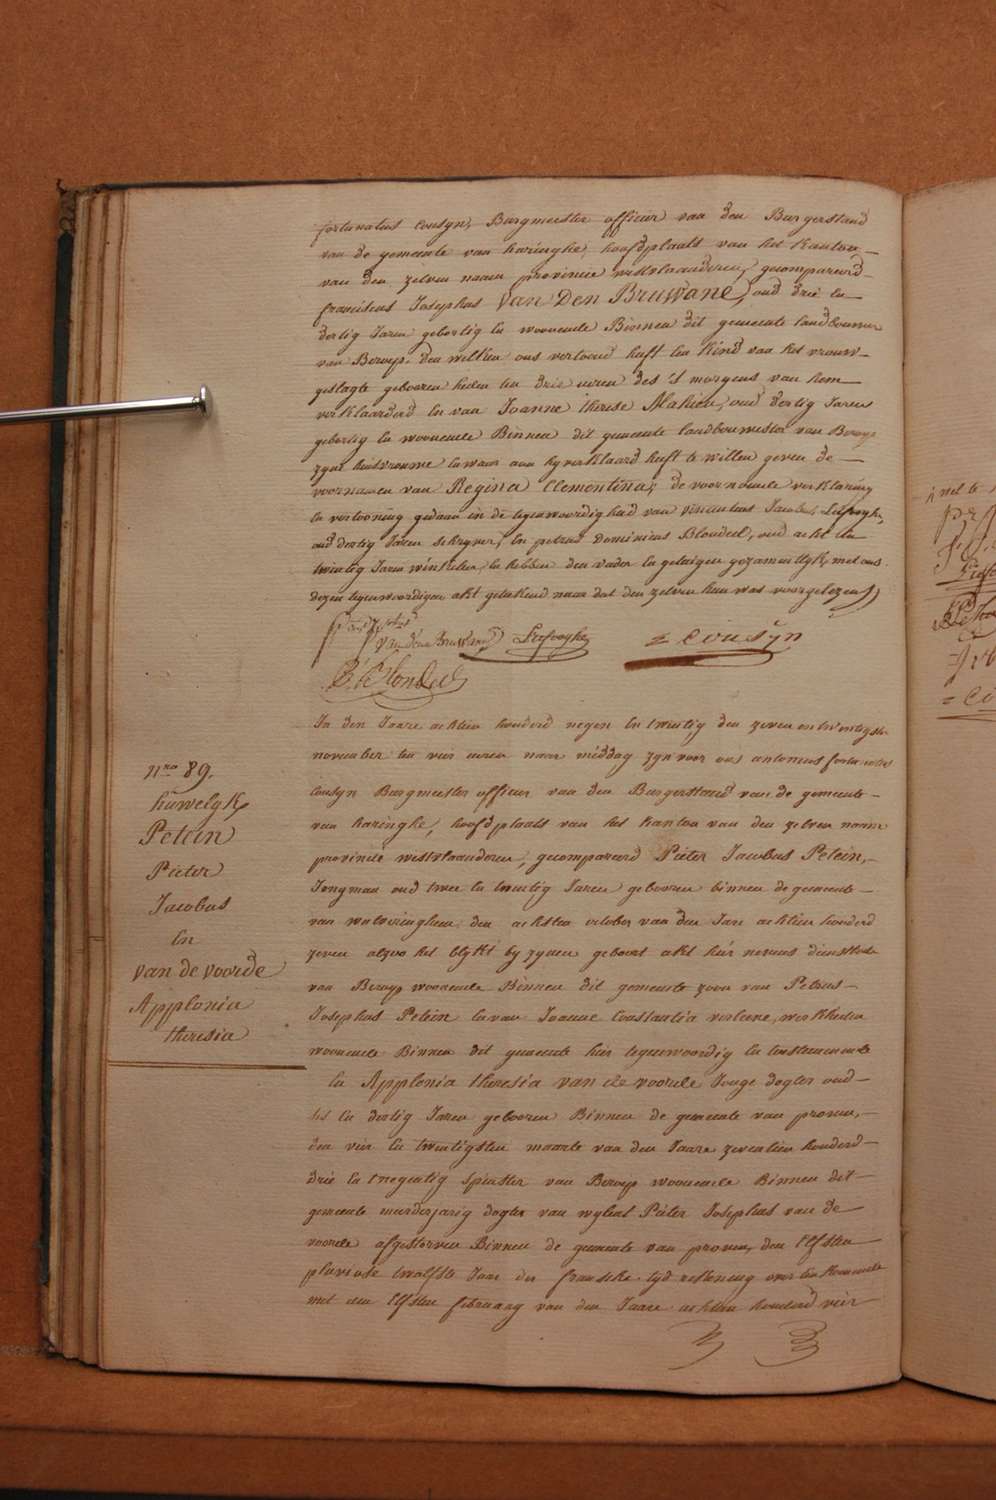 fortunatus Cousyn, Burgmeester officier van den Burgerstand
van de gemeente van haringhe, hoofdplaats van het kanton
van den zelven naam provincie westvlaanderen, gecompareerd
franciscus Josephus Van Den Bruwane, oud drie en
dertig Jaren geboortig en woonende Binnen dit gemeente landbouwer
van Beroep. den welken ons vertoond heeft een kind van het vrouw-
geslagte gebooren heden ten drie uren des 's morgens van hem
verklaarderd en van Joanne therese Mahieu, oud dertig Jaren
geboortig en woonende Binnen dit gemeente landbouwester van Beroep
zyne huisvrouwe en waer aan hy verklaard heeft te willen geven de
voornamen van Regina Clementina; de voornoemde verklaring
en vertooning gedaan in de tegenwoordigheid van vincentius Jacobus Liefooghe,
oud dertig Jaren schryver, en petrus Dominicus Blondeel, oud acht en
twintig Jaren winkelier, en hebben den vader en getuigen gezamentlyk met ons
dezen tegenwoordigen akt geteekend naar dat den zelven hun was voorgelezen
van den Bruwane Liefooghe = Cousÿn
B. Blondeel
In den Jaare achtien honderd negen en twintig den zeven en twintigsten
november ten vier uren naar middag zyn voor ons antonius fortunatus
Cousyn Burgmeester officier van den Burgerstand van de gemeente
van haringhe, hoofdplaats van het kanton van den zelven naam
provincie westvlaanderen, gecompareerd Pieter Jacobus Petein,
Jongman oud twee en twintig Jaren geboren binnen de gemeente
van watveringhem den achsten october van den Jare achtien honderd
zeven alzoo het blykt by zynen geboort akt hier nevens dienstbode
van Beroep woonende Binnen dit gemeente zoon van Petrus
Josephus Petein en van Joanne Constantia verleene, werklieden
woonende Binnen dit gemeente hier tegenwoordig en toestemmende
en Applonia theresia van de voorde Jonge dogter oud
ses en dertig Jaren geboren Binnen de gemeente van proven,
den vier en twintigsten maarte van den Jaare zeventien honderd
drie en tnegentig spinster van Beroep woonende Binnen dit
gemeente meerderjarig dogter van wylent Pieter Josephus van de
voorde afgestorven Binnen de gemeente van proven, den Elfsten
pluviose twalfste Jaar der fransche tyd rekening over een komende
met den Elfsten februarÿ van den Jaare achtien honderd vier
nro 89.
huwelyk
Petein
Pieter
Jacobus
En
van de voorde
Applonia
theresia